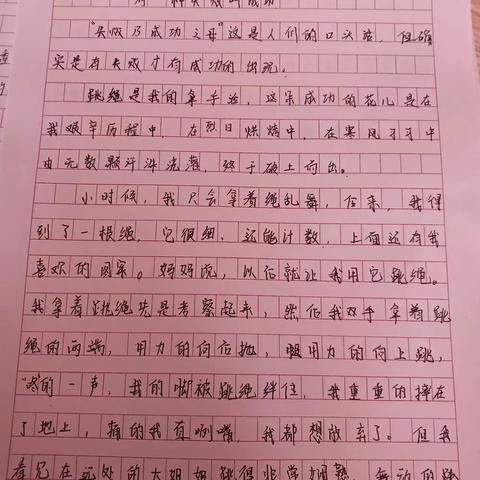 有一种失败叫成功
“失败乃成功之母”这是人们的口头语,但确
实是有失败才有成功的出现。
跳绳是我的拿手活,这朵成功的花儿是在
我艰辛历程中,在烈日烘烤中,在寒风习习中
由无数颗汗洙浇灌,终于破土而出。
小时候,我只会拿着绳乱舞,后来,我得
到了一根绳,它很细,还能计数,上面还有我
喜欢的图案。妈妈说,以后就让我用它跳绳。
我拿着跳绳先是考察起来,然后我双手拿着跳
绳的两端,用力的向后抛,用力的向上跳,
“咚”的一声,我的脚被跳绳绊住,我重重的摔在
了地上,痛的我直咧嘴,我都想放弃了。但我
看见在远处的大姐姐跳得非常娴熟,舞动的跳